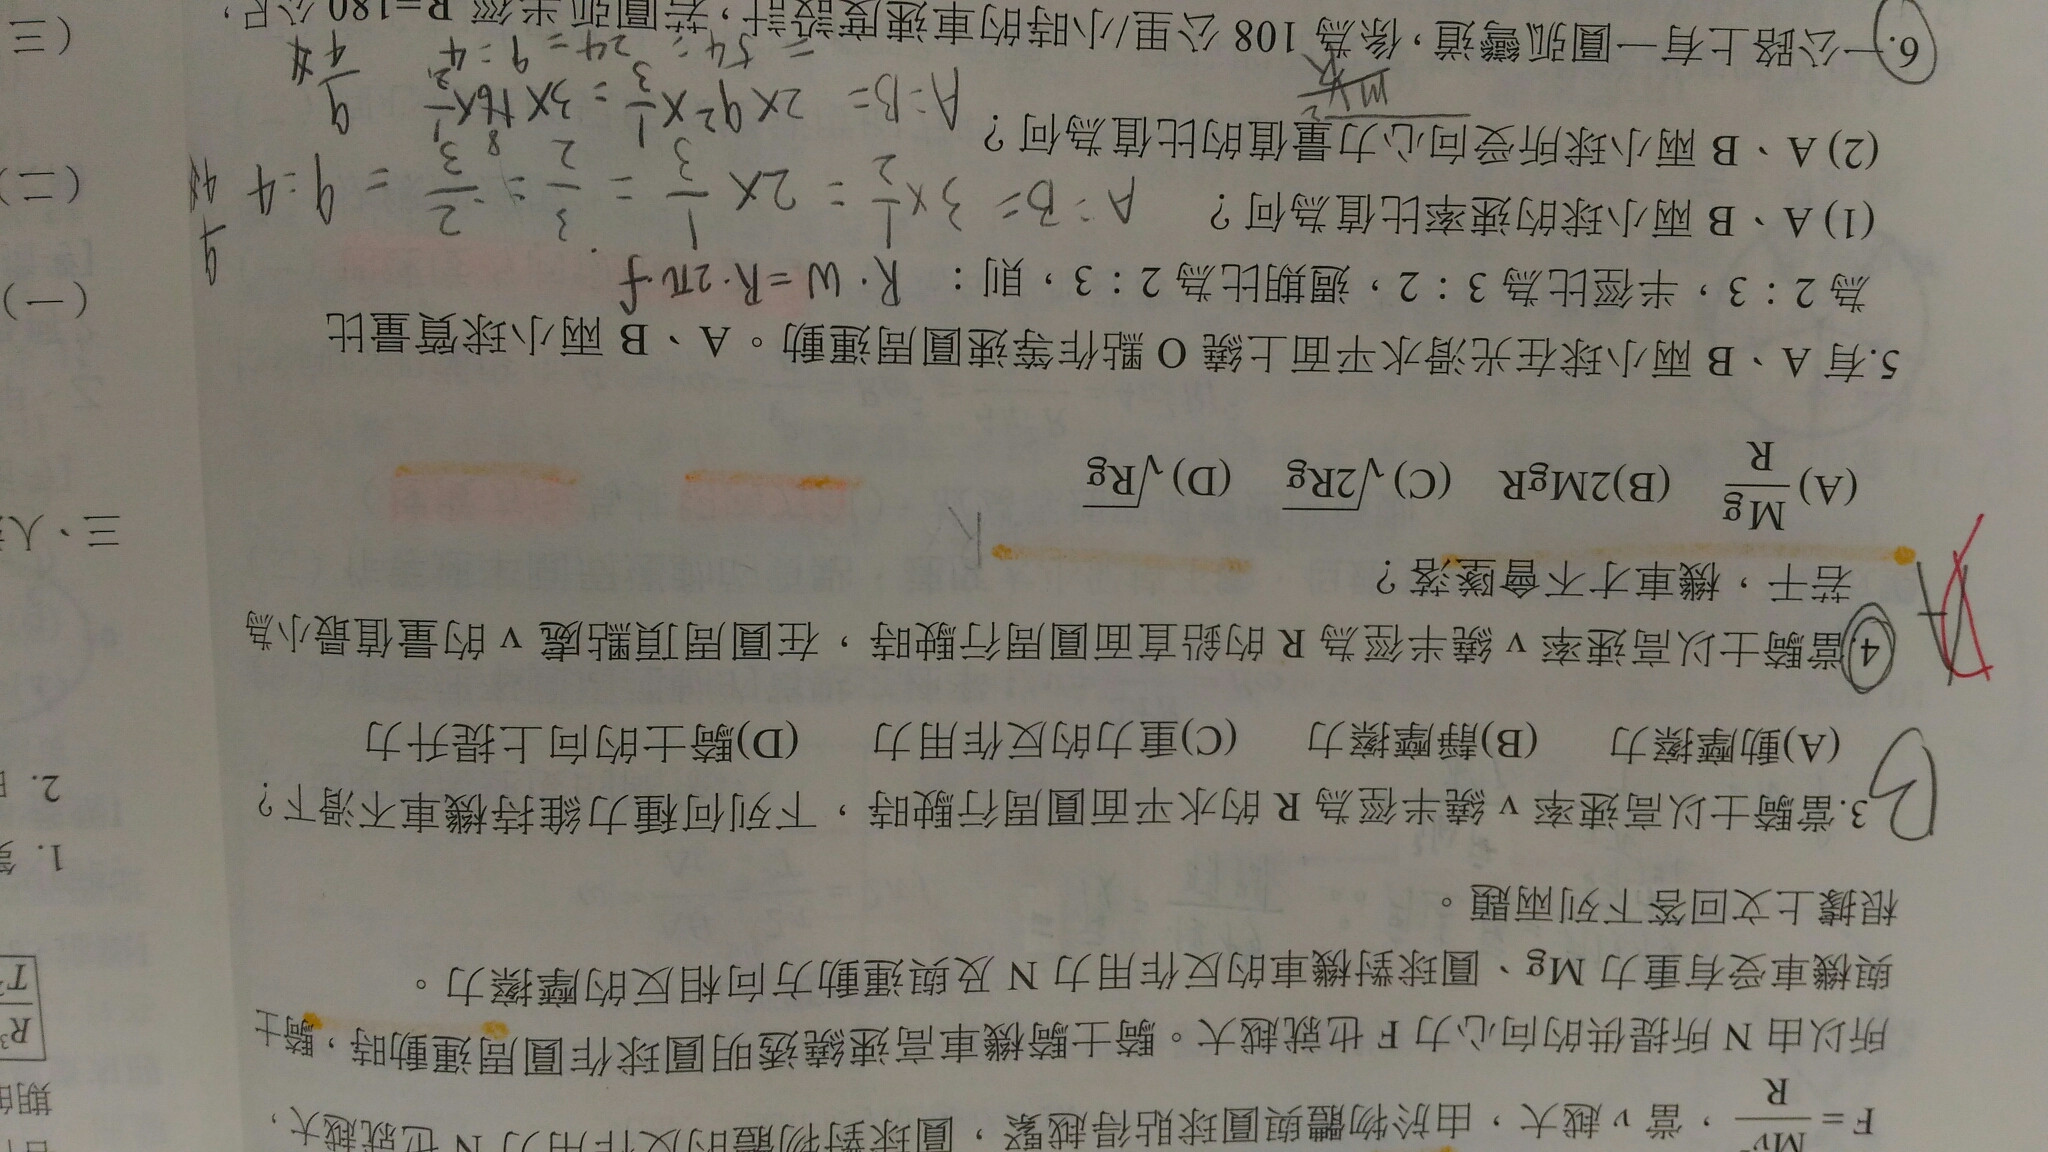 F = Mv²/R，當 v 越大，由於物體與圓球貼得越緊，圓球對物體的反作用力 N 也就越大，
所以由 N 所提供的向心力 F 也就越大。騎士騎機車高速繞透明圓球作圓周運動時，騎士
與機車受有重力 Mg、圓球對機車的反作用力 N 及與運動方向相反的摩擦力。
根據上文回答下列兩題。
B 3.當騎士以高速率 v 繞半徑為 R 的水平面圓周行駛時，下列何種力維持機車不滑下？
(A)動摩擦力 (B)靜摩擦力 (C)重力的反作用力 (D)騎士的向上提升力
4.當騎士以高速率 v 繞半徑為 R 的鉛直面圓周行駛時，在圓周頂點處 v 的量值最小為
若干，機車才不會墜落？
(A) Mg/R (B)2MgR (C)√2Rg (D)√Rg
5.有 A、B 兩小球在光滑水平面上繞 O 點作等速圓周運動。A、B 兩小球質量比
為 2：3，半徑比為 3：2，週期比為 2：3，則： R·W=R·2π·f
(1) A、B 兩小球的速率比值為何？ A:B= 3×1/2 : 2×1/3 = 3/2 : 2/3 = 9:4
(2) A、B 兩小球所受向心力量值的比值為何？
6.一公路上有一圓弧彎道，係為 108 公里/小時的車速度設計，若圓弧半徑 R=180 公尺，
三、人
(一)
(二)
(三)
1.
2.
R³
T²